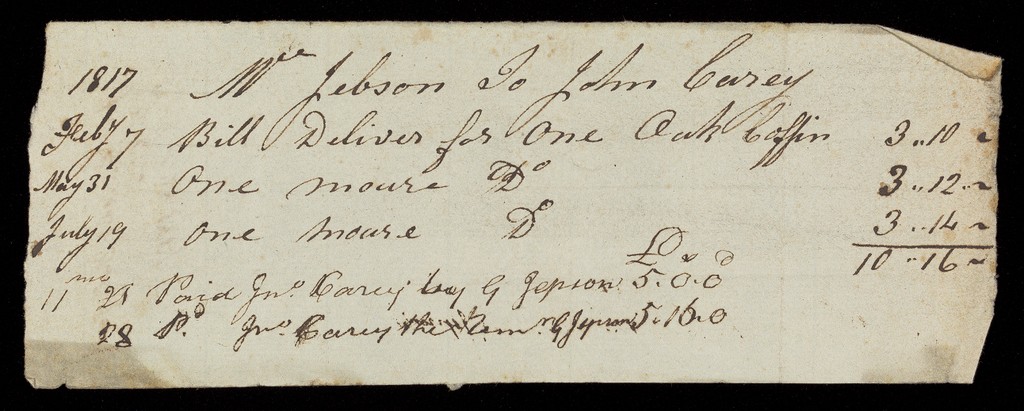 1817 Mr Jebson To John Carey
Feby 7 Bill Deliver for One Oak Coffin 3 .. 10 ~
May 31 One moure Do 3 .. 12 .. ~
July 19 One moure Do 3 .. 14 ~
10 .. 16 ~
£ s d
11 mo 21 Paid Jno Carey by G Jepson 5. 0. 0
28 Pd Jno Carey the Rem G Jepson 5. 16. 0